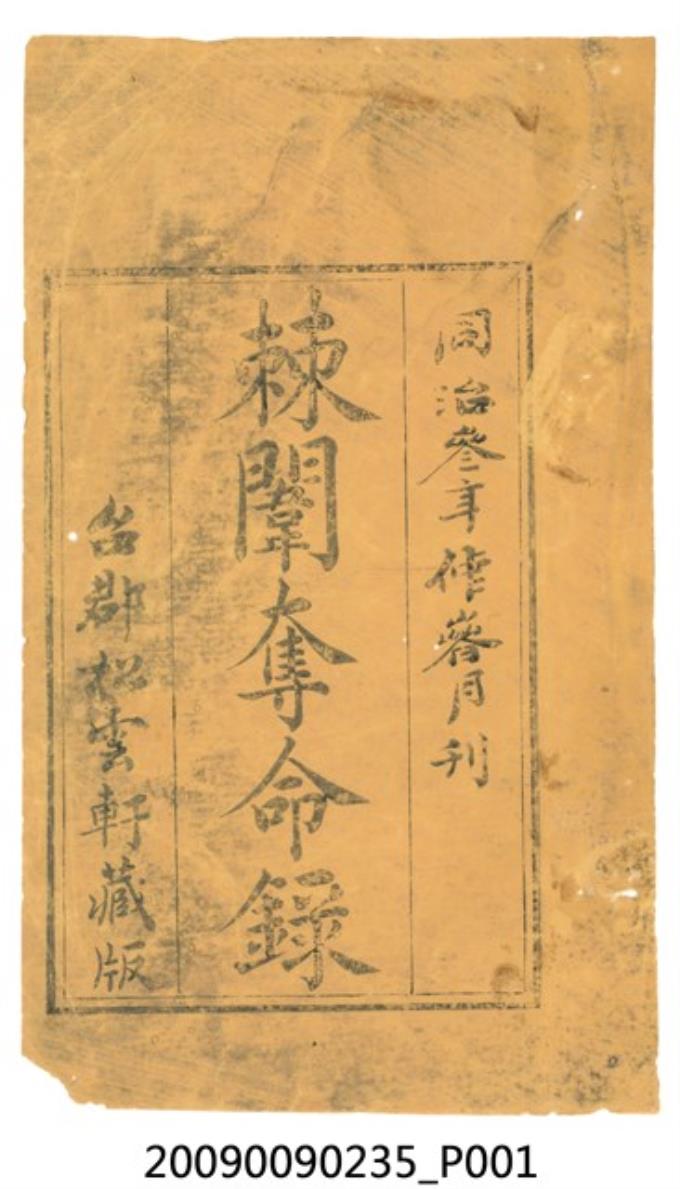 同治叁年蓉月刊
棘闈奪命錄
台郡松雲軒藏版
20090090235_P001